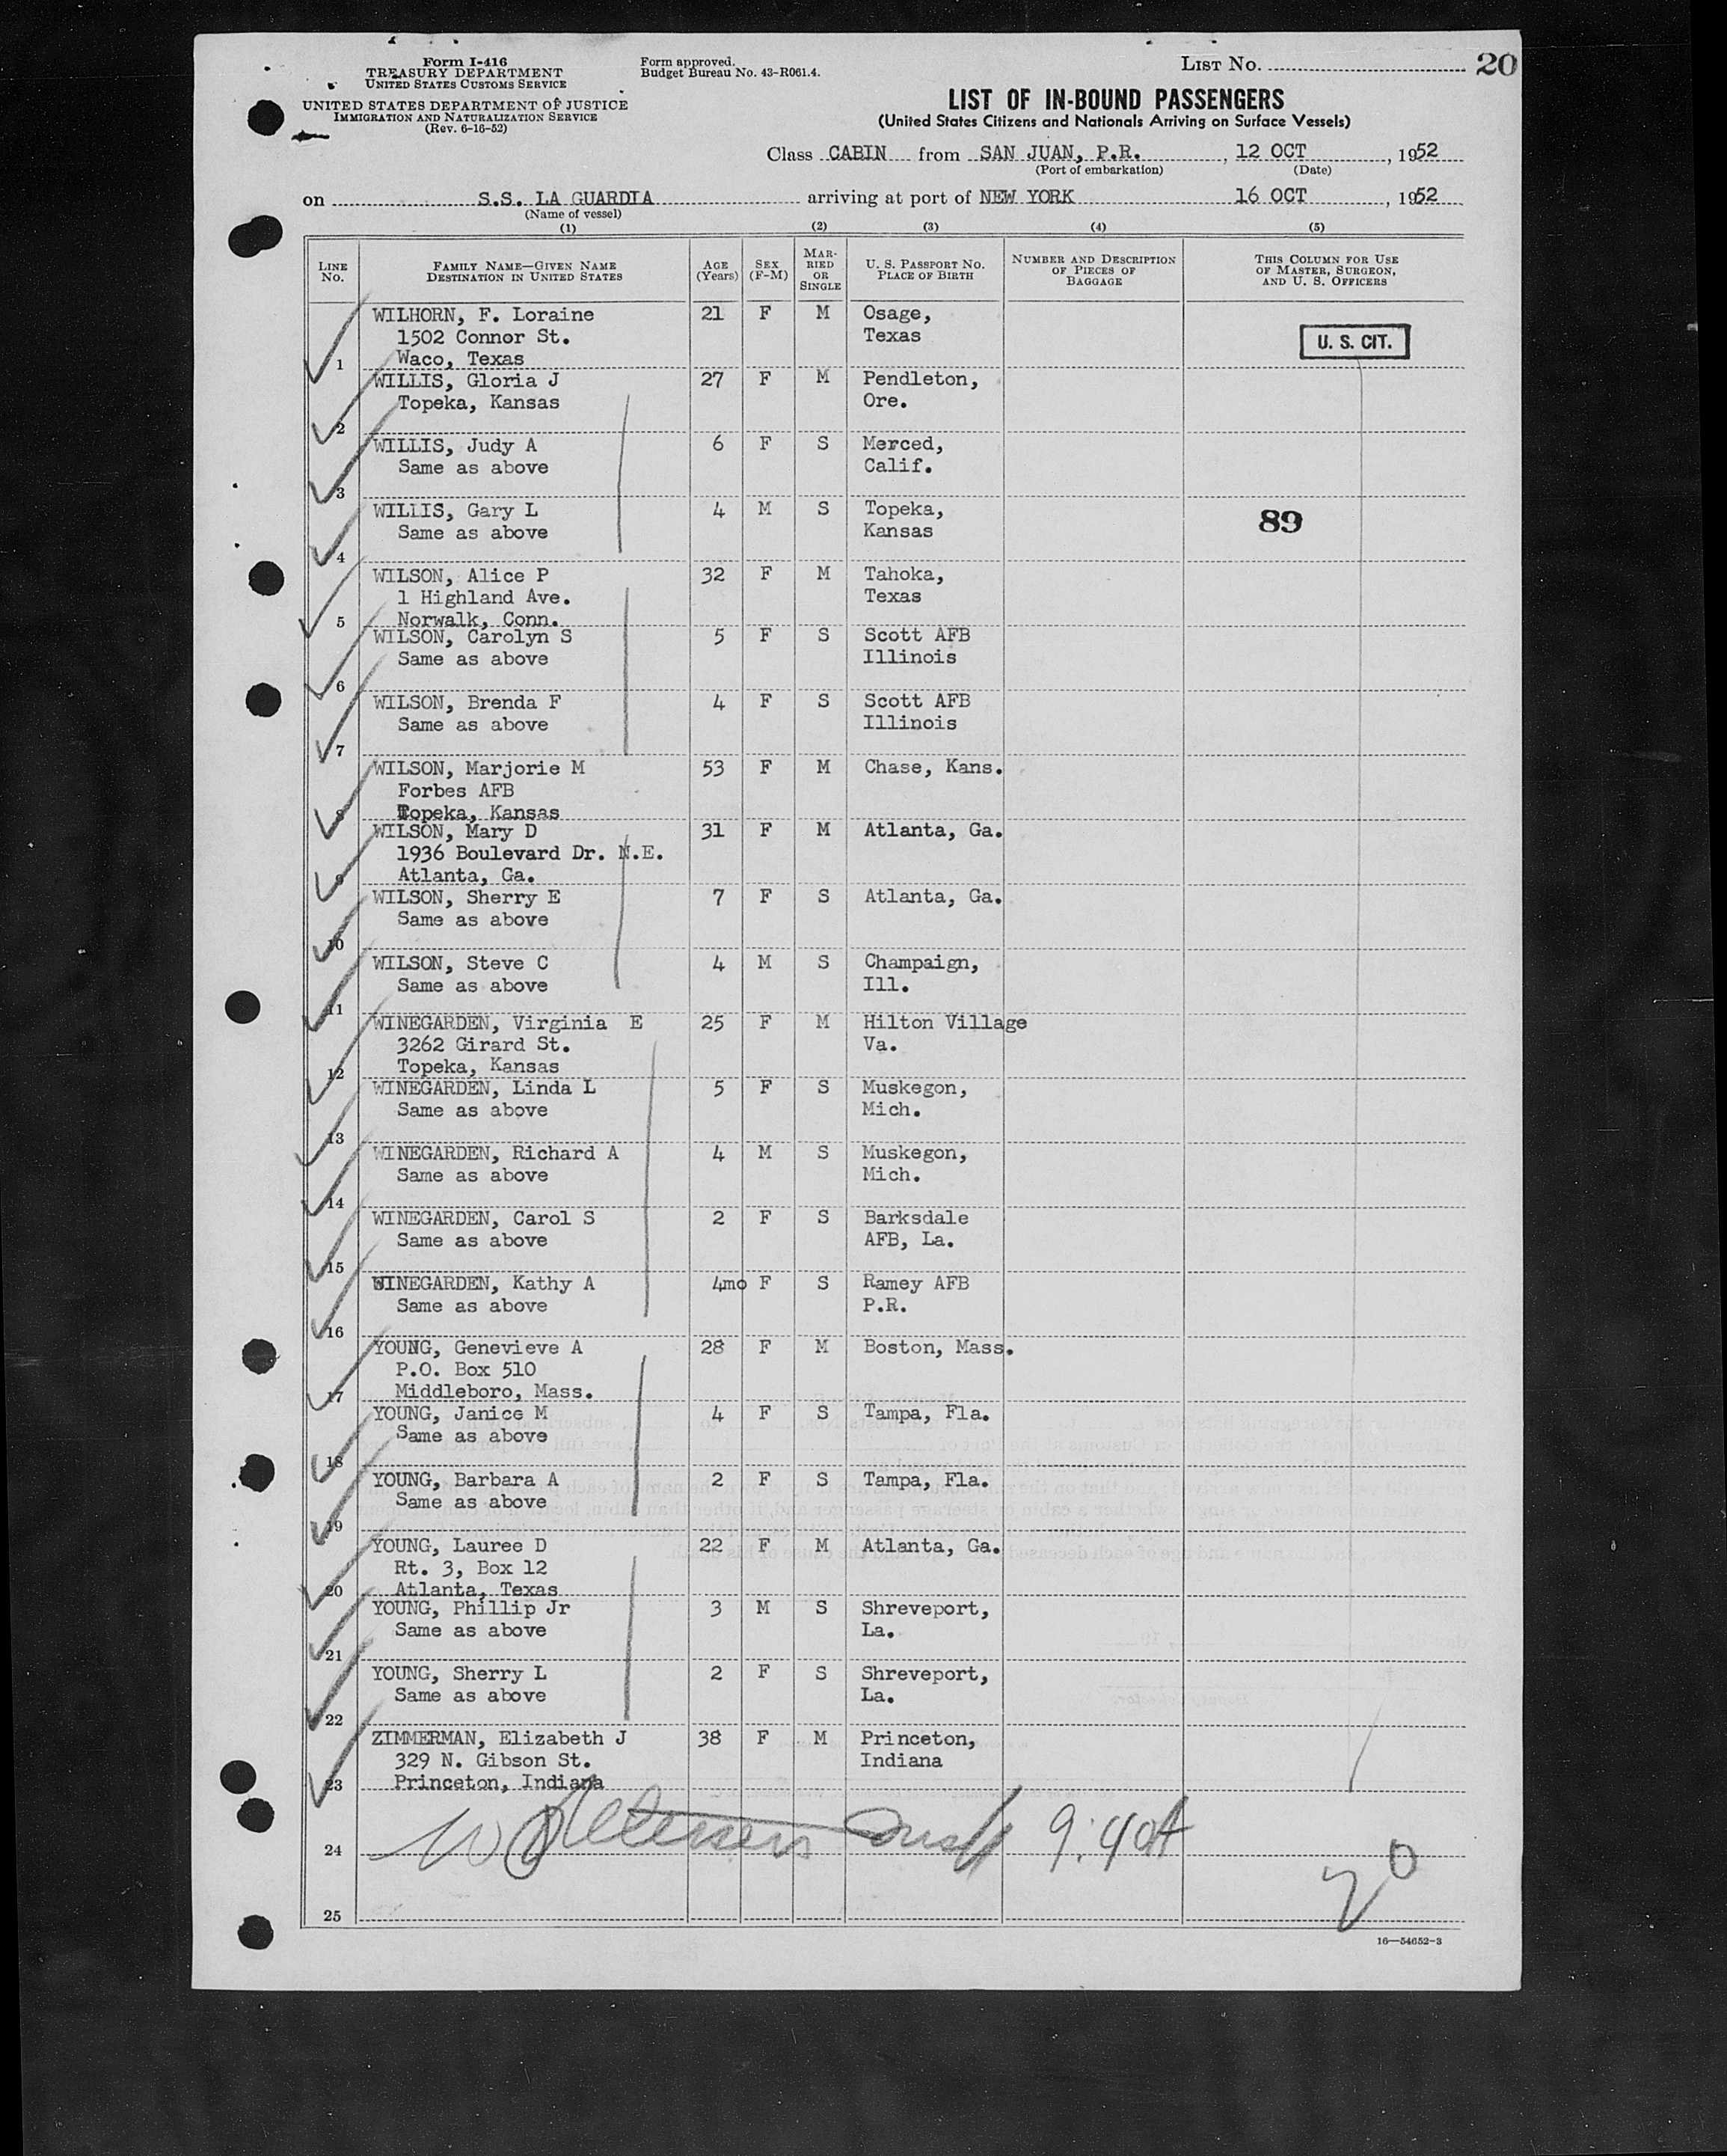 Form I-416
TREASURY DEPARTMENT
UNITED STATES CUSTOMS SERVICE
UNITED STATES DEPARTMENT OF JUSTICE
IMMIGRATION AND NATURALIZATION SERVICE
(Rev. 6-16-52)
Form approved.
Budget Bureau No. 43-R061.4.
LIST NO. 20
LIST OF IN-BOUND PASSENGERS
(United States Citizens and Nationals Arriving on Surface Vessels)
Class CABIN from SAN JUAN, P.R., 12 OCT, 1952
(Port of embarkation) (Date)
on S.S. LA GUARDIA arriving at port of NEW YORK 16 OCT, 1952
(Name of vessel)
(1) (2) (3) (4) (5)
LINE NO. FAMILY NAME—GIVEN NAME DESTINATION IN UNITED STATES AGE (Years) SEX (F-M) MARRIED OR SINGLE U. S. PASSPORT NO. PLACE OF BIRTH NUMBER AND DESCRIPTION OF PIECES OF BAGGAGE THIS COLUMN FOR USE OF MASTER, SURGEON, AND U. S. OFFICERS
WILHORN, F. Loraine 21 F M Osage,
1502 Connor St. Texas U. S. CIT.
1 Waco, Texas
WILLIS, Gloria J 27 F M Pendleton,
Topeka, Kansas Ore.
2
WILLIS, Judy A 6 F S Merced,
Same as above Calif.
3
WILLIS, Gary L 4 M S Topeka, 89
Same as above Kansas
4
WILSON, Alice P 32 F M Tahoka,
1 Highland Ave. Texas
5 Norwalk, Conn.
WILSON, Carolyn S 5 F S Scott AFB
Same as above Illinois
6
WILSON, Brenda F 4 F S Scott AFB
Same as above Illinois
7
WILSON, Marjorie M 53 F M Chase, Kans.
Forbes AFB
8 Topeka, Kansas
WILSON, Mary D 31 F M Atlanta, Ga.
1936 Boulevard Dr. N.E.
9 Atlanta, Ga.
WILSON, Sherry E 7 F S Atlanta, Ga.
Same as above
10
WILSON, Steve C 4 M S Champaign,
Same as above Ill.
11
WINEGARDEN, Virginia E 25 F M Hilton Village
3262 Girard St. Va.
12 Topeka, Kansas
WINEGARDEN, Linda L 5 F S Muskegon,
Same as above Mich.
13
WINEGARDEN, Richard A 4 M S Muskegon,
Same as above Mich.
14
WINEGARDEN, Carol S 2 F S Barksdale
Same as above AFB, La.
15
WINEGARDEN, Kathy A 4mo F S Ramey AFB
Same as above P.R.
16
YOUNG, Genevieve A 28 F M Boston, Mass.
P.O. Box 510
17 Middleboro, Mass.
YOUNG, Janice M 4 F S Tampa, Fla.
Same as above
18
YOUNG, Barbara A 2 F S Tampa, Fla.
Same as above
19
YOUNG, Lauree D 22 F M Atlanta, Ga.
Rt. 3, Box 12
20 Atlanta, Texas
YOUNG, Phillip Jr 3 M S Shreveport,
Same as above La.
21
YOUNG, Sherry L 2 F S Shreveport,
Same as above La.
22
ZIMMERMAN, Elizabeth J 38 F M Princeton,
329 N. Gibson St. Indiana
23 Princeton, Indiana
24 9:40A
20
25
16—54652-3